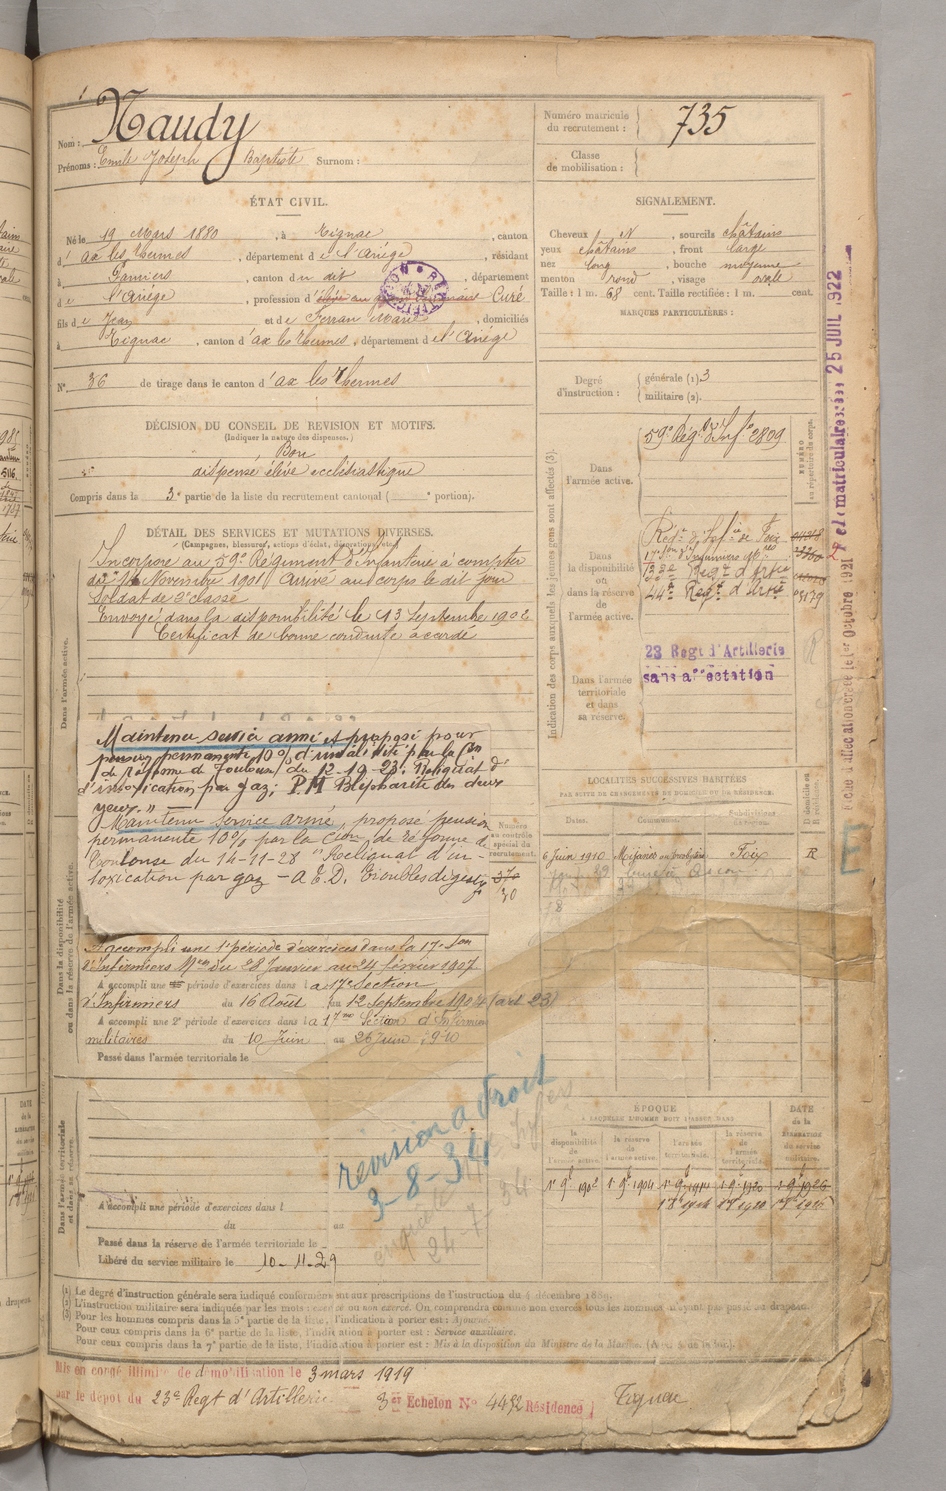 Nom : Naudy
Prénoms : Emile Joseph Baptiste Surnom :
Numéro matricule du recrutement : 735
Classe de mobilisation :
ÉTAT CIVIL.
Né le 19 Mars 1880, à Tignac, canton
d'ax les Thermes, département de l'Ariège, résidant
à Pamiers, canton du dit, département
de l'Ariège, profession d'élève au grand séminaire Curé
fils de Jean et de Ferran Marie, domiciliés
à Tignac, canton d'ax les Thermes, département de l'Ariège
N° 36 de tirage dans le canton d'ax les Thermes
SIGNALEMENT.
Cheveux N, sourcils châtains
yeux châtains, front large
nez long, bouche moyenne
menton rond, visage ovale
Taille : 1 m. 68 cent. Taille rectifiée : 1 m. cent.
MARQUES PARTICULIÈRES :
Degré d'instruction : générale (1). 3
militaire (2).
DÉCISION DU CONSEIL DE REVISION ET MOTIFS.
(Indiquer la nature des dispenses.)
Bon
dispensé élève ecclésiastique
Compris dans la 3e partie de la liste du recrutement cantonal ( e portion).
DÉTAIL DES SERVICES ET MUTATIONS DIVERSES.
(Campagnes, blessures, actions d'éclat, décorations, etc.)
Incorporé au 59e Régiment d'Infanterie à compter
du 14 Novembre 1901 Arrivé au corps le dit jour
Soldat de 2e classe
Envoyé dans la disponibilité le 13 Septembre 1902
Certificat de bonne conduite accordé
Dans l'armée active.
Maintenu service armé et proposé pour
pension permanente 10% d'invalidité par la Con
de réforme de Toulouse du 12-19-23. Reliquat d'
d'intoxication par gaz; P.M Blépharite des deux
yeux. "
Maintenu service armé, propose pension
permanente 10% par la Cion de réforme de
Toulouse du 14-11-28 "Reliquat d'in-
toxication par gaz - A E.D. Troubles digestifs
Numéro au contrôle spécial du recrutement.
370
30
Dans la disponibilité ou dans la réserve de l'armée active.
A accompli une 1e période d'exercices dans la 17e Son
d'Infirmiers Mres du 28 Janvier au 24 février 1907
A accompli une période d'exercices dans la 17e Section
d'Infirmiers du 16 Août au 12 Septembre 1904 (art 23)
A accompli une 2e période d'exercices dans la 17me Section d'Infirmiers
militaires du 10 Juin au 26 Juin 1910
Passé dans l'armée territoriale le
Dans l'armée territoriale et dans sa réserve.
A accompli une période d'exercices dans l
du au
Passé dans la réserve de l'armée territoriale le
Libéré du service militaire le 10-11-29
revision a droit
3-8-34
24-7-34
Indication des corps auxquels les jeunes gens sont affectés (3).
NUMÉRO au répertoire du corps.
Dans l'armée active.
59e Régt d'Inf. 2809
Dans la disponibilité ou dans la réserve de l'armée active.
Régt d'Infie de Foix
17e Son d'Infirmiers Mres
Regt d'Artie
44e Regt d'Artie 05179
Dans l'armée territoriale et dans sa réserve.
23 Regt d'Artillerie
sans affectation
LOCALITÉS SUCCESSIVES HABITÉES
PAR SUITE DE CHANGEMENTS DE DOMICILE OU DE RÉSIDENCE.
Dates. Communes. Subdivisions de région. D domicile ou R résidence.
6 Juin 1910 Mijanès au presbytère Foix R
ÉPOQUE
À LAQUELLE L'HOMME DOIT PASSER DANS
la disponibilité de l'armée active. la réserve de l'armée active. l'armée territoriale. la réserve de l'armée territoriale. DATE de la LIBÉRATION du service militaire.
1er 9e 1902 1er 9e 1904 1er 9e 1914 1er 9e 1920 1er 9e 1926
E
25 JUIL 1922
(1) Le degré d'instruction générale sera indiqué conformément aux prescriptions de l'instruction du 4 décembre 1889.
(2) L'instruction militaire sera indiquée par les mots : exercé ou non exercé. On comprendra comme non exercés tous les hommes n'ayant pas passé au drapeau.
(3) Pour les hommes compris dans la 5e partie de la liste, l'indication à porter est : Ajourné.
Pour ceux compris dans la 6e partie de la liste, l'indication à porter est : Service auxiliaire.
Pour ceux compris dans la 7e partie de la liste, l'indication à porter est : Mis à la disposition du Ministre de la Marine.
Mis en congé illimité de démobilisation le 3 mars 1919
par le dépôt du 23e Regt d'Artillerie 3er Echelon N° 4492 Résidence Tignac